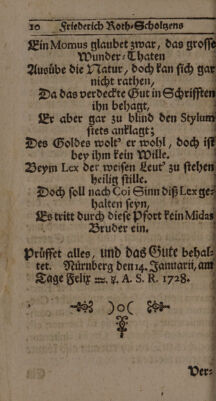 10 Friederich Roth-Scholtzens
Ein Momus glaubet zwar, das grosse
Wunder-Thaten
Ausübe die Natur, doch kan sich gar
nicht rathen,
Da das verdeckte Gut in Schrifften
ihn behagt,
Er aber gar zu blind den Stylum
stets anklagt;
Des Goldes wolt' er wohl, doch ist
bey ihm kein Wille.
Beym Lex der weisen Leut' zu stehen
heilig stille.
Doch soll nach Coi Sinn diß Lex ge-
halten seyn,
Es tritt durch diese Pfort kein Midas
Bruder ein.
Prüffet alles, und das Gute behal-
tet. Nürnberg den 14. Januarii, am
Tage Felix A. S. R. 1728.
)o(
Ver-